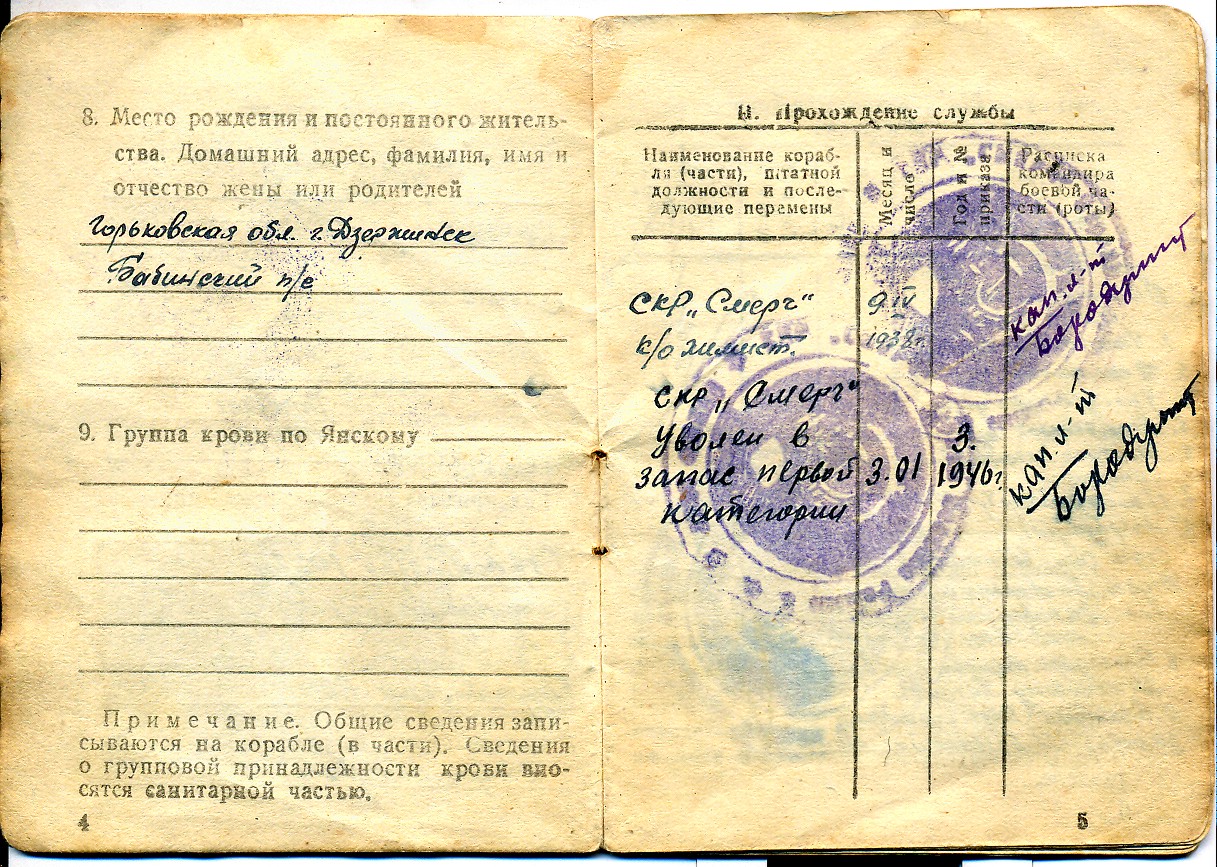 8. Место рождения и постоянного житель-
ства. Домашний адрес, фамилия, имя и
отчество жены или родителей
Горьковская обл. г. Дзержинск
Бабинский п/с
9. Группа крови по Янскому
Примечание. Общие сведения запи-
сываются на корабле (в части). Сведения
о групповой принадлежности крови вно-
сятся санитарной частью.
4
II. Прохождение службы
Наименование кораб-
ля (части), штатной
должности и после-
дующие перемены
Месяц и
число
Год и №
приказа
Расписка
командира
боевой ча-
сти (роты)
СКР „Смерч" 9 IV
к/о химист. 1938г.
кап. л-т
СКР „Смерч"
Уволен в 3.
запас первой 3.01 1946г.
категории
кап. л-т
5